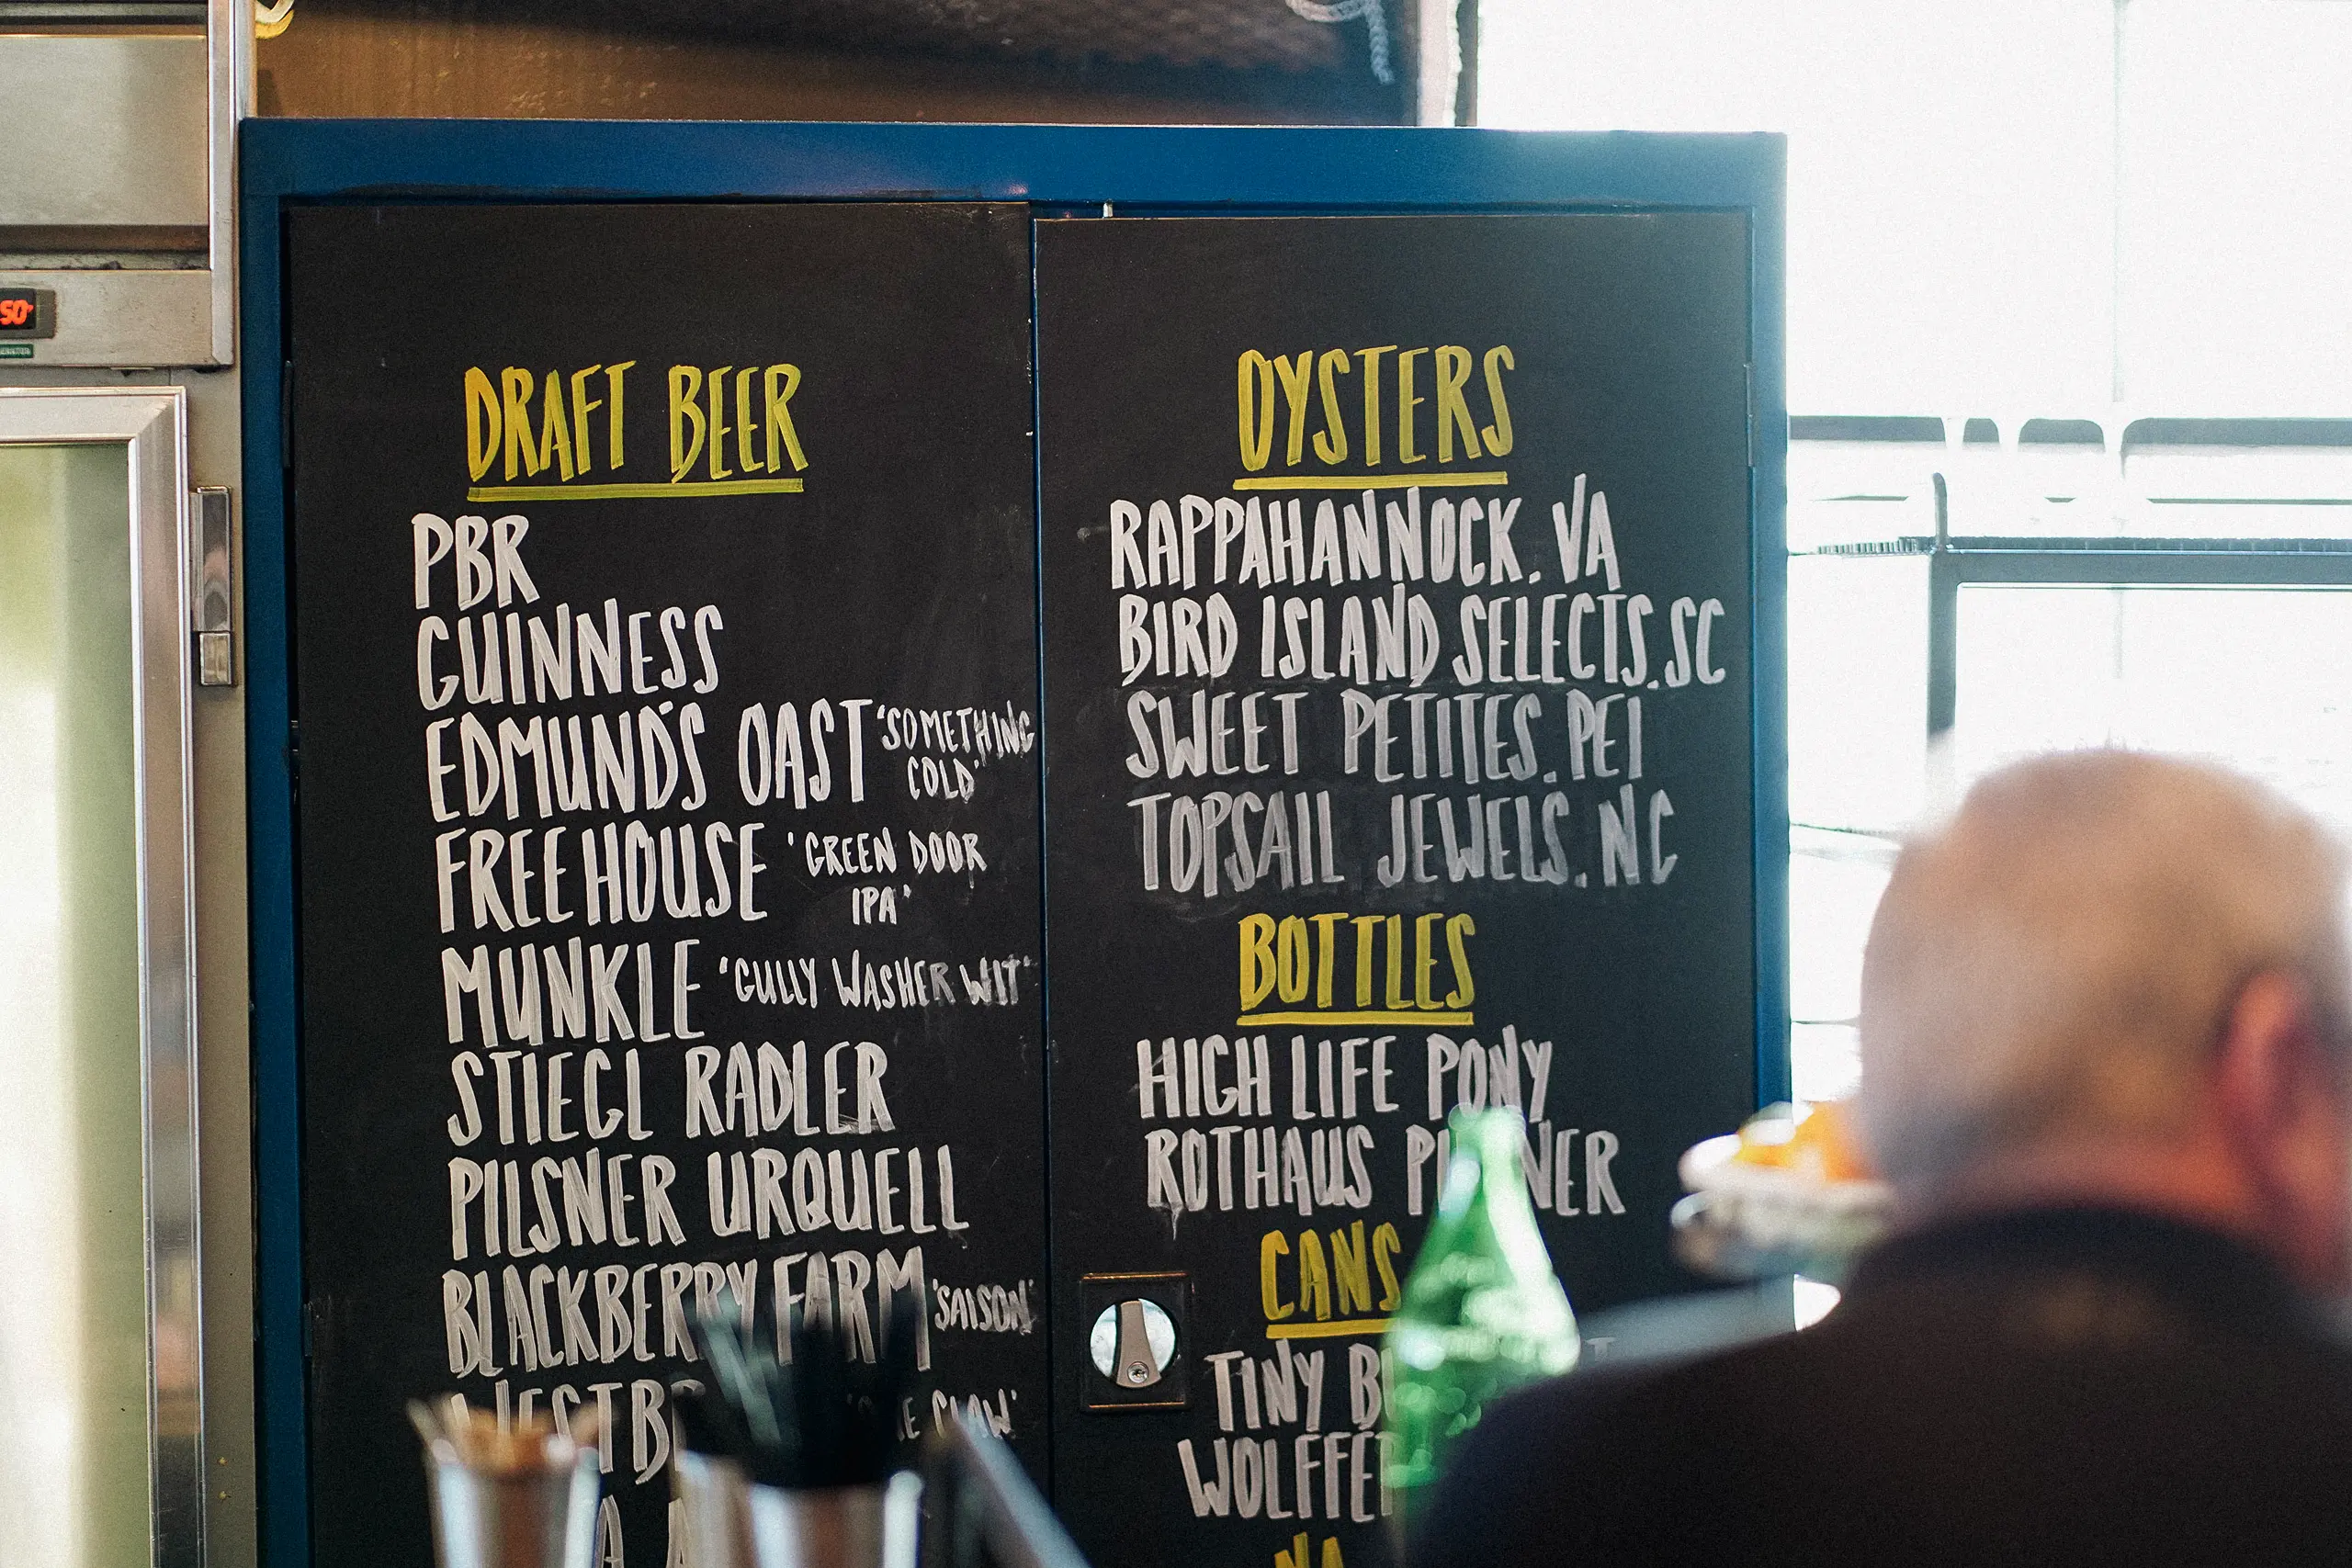 50°
DRAFT BEER
PBR
GUINNESS
EDMUND'S OAST 'SOMETHING
COLD'
FREEHOUSE 'GREEN DOOR
IPA'
MUNKLE 'GULLY WASHER WIT'
STIEGL RADLER
PILSNER URQUELL
BLACKBERRY FARM 'SAISON'
CLAW'
OYSTERS
RAPPAHANNOCK. VA
BIRD ISLAND SELECTS. SC
SWEET PETITES. PEI
TOPSAIL JEWELS. NC
BOTTLES
HIGH LIFE PONY
ROTHAUS
CANS
TINY
NA